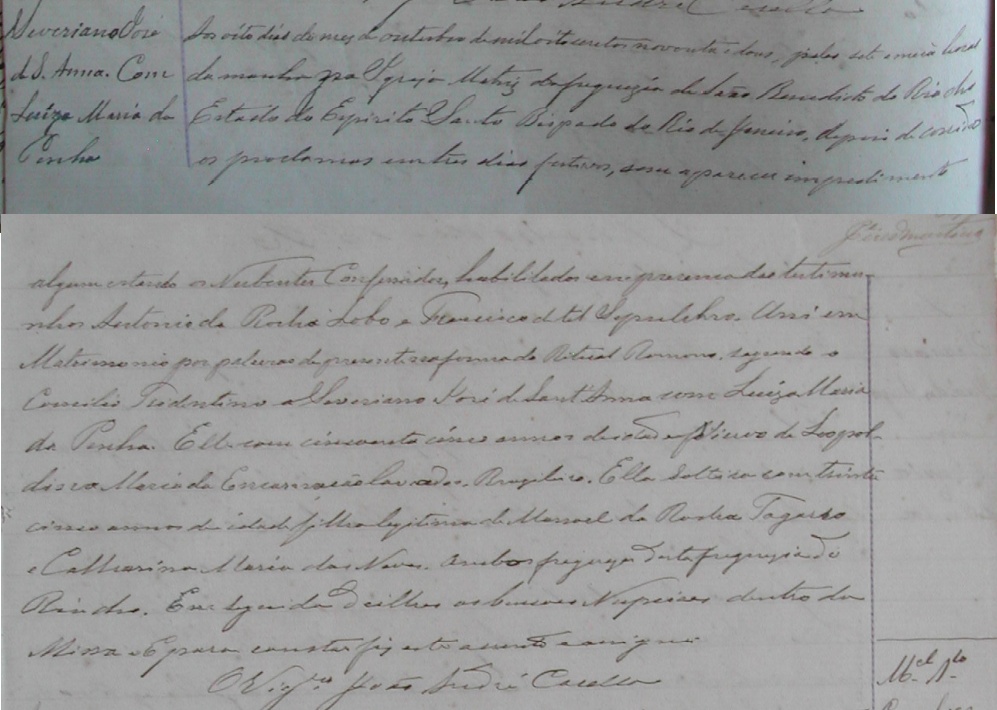 João André Casella
Severiano José
de S. Anna. Com
Luiza Maria da
Penha
Aos oito dias do mez de outubro de mil oito centos noventa e dous, pelas sete e meia horas
da manhã na Igreja Matriz da freguezia de São Benedicto do Riacho
Estado do Espirito Santo Bispado do Rio de Janeiro, depois de corridos
os proclamas em tres dias festivos, sem apparecer impedimento
algum estando os Nubentes Confessados, habilitados em presença das testimu-
nhas Antonio da Rocha Lobo e Francisco de tal Sepulchro. Uni em
Matrimonio por palavras de presente na forma do Ritual Romano, segundo o
Concilio Tridentino a Severiano José de Sant'Anna com Luiza Maria
da Penha. Elle com cincoenta cinco annos de idade Viuvo de Leopol-
dina Maria da Encarnação lavrador, Brazileiro. Ella Solteira com trinta
cinco annos de idade filha legitima de Manoel da Rocha Tagarro
e Catharina Maria das Neves. Ambos freguezes desta freguezia do
Riacho. Em seguida dei lhes as bençãos Nupciaes dentro da
Missa. E para constar fiz este assento e assignei
O Vigrº João André Casella
Mel Pto